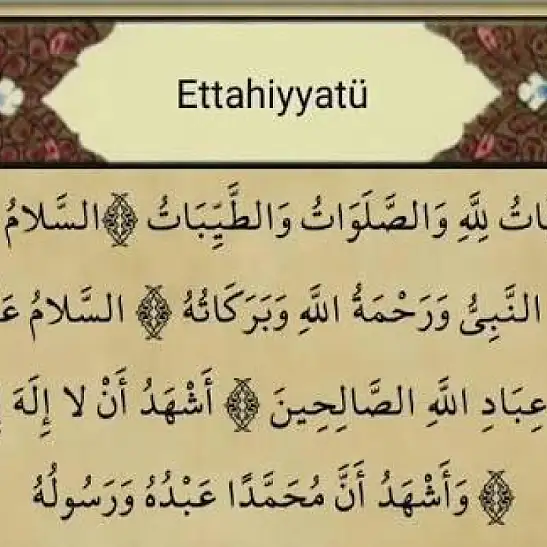 Ettahiyyatü
ـاتُ لِلَّهِ وَالصَّلَوَاتُ وَالطَّيِّبَاتُ ۞ السَّلامُ
النَّبِىُّ وَرَحْمَةُ اللَّهِ وَبَرَكَاتُهُ ۞ السَّلامُ عَـ
عِبَادِ اللَّهِ الصَّالِحِينَ ۞ أَشْهَدُ أَنْ لا إِلَهَ
۞ وَأَشْهَدُ أَنَّ مُحَمَّدًا عَبْدُهُ وَرَسُولُهُ